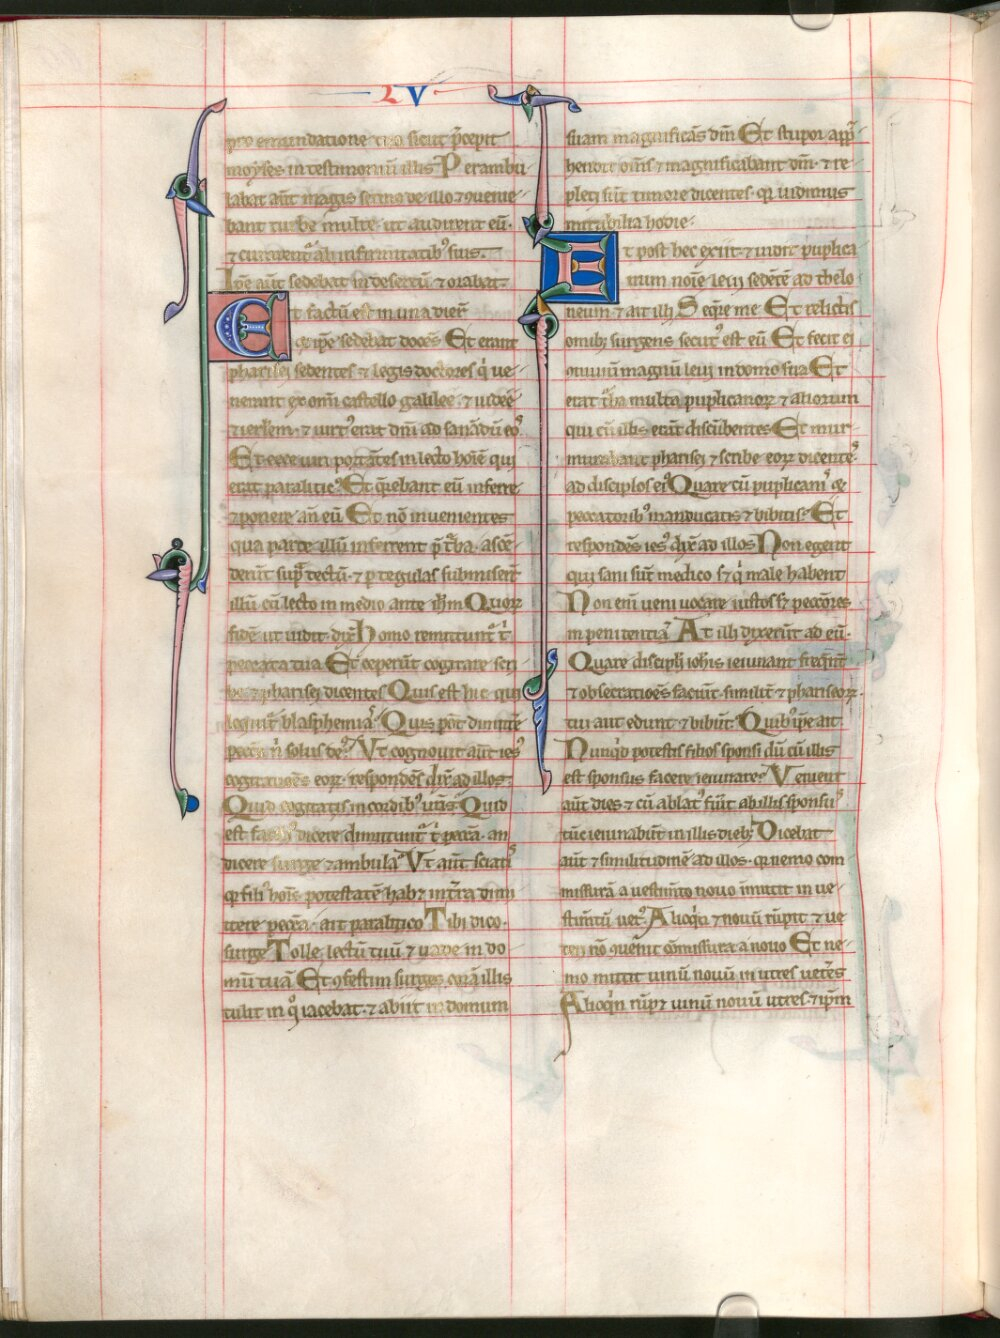 LV
pro emundatione tua sicut p̄cepit
moyses in testimoniū illis Perambu
labat aūt magis sermo de illo ⁊ ꝯuenie
bant turbe multe ut audirent eū
⁊ curarent᷑ ab infirmitatib᷒ suis.
Ip̄e aūt sedebat in desertū ⁊ orabat
Et factū est in una dierꝝ
⁊ ip̄e sedebat docēs Et erant
pharisei sedentes ⁊ legis doctores q̇ ue
nerant ex omī castello galilee ⁊ iudee
⁊ ierlem ⁊ uirt᷒ erat dn̄i ad sanādū eos
Et ecce uiri portātes in lecto hoīem qui
erat paralitic᷒ Et q̄rebant eū inferre
⁊ ponere an̄ eū Et nō inuenientes
qua parte illū inferrent p̄ t᷑ba. ascē
derūt sup̄ tectū ⁊ ꝑ tegulas submiser̄t
illū cū lecto in medio ante ih̄m Quoꝝ
fidē ut uidit. dix̄ homo remittunt᷑ t̄
peccata tua Et ceperūt cogitare scri
be ⁊ pharisei dicentes Quis est hic qui
loquit᷑ blasphemiā Quis pōt dimitte
peccā n̄ solus de᷒ Vt cognouit aūt ies᷒
cogitatiōes eoꝝ. respondēs dix̄ ad illos
Quid cogitatis in cordib᷒ ur̄is Quid
est facili᷒ dicere dimittunt᷑ t̄ peccā. an
dicere surge ⁊ ambula Vt aūt sciatis
q̄ fili᷒ hoīs potestatē habꝫ in t̄ra dimi
ttere peccā. ait paralitico Tibi dico.
surge Tolle lectū tuū ⁊ uade in do
mū tuā Et ꝯfestim surgēs corā illis
tulit in q̊ iacebat ⁊ abiit in domum
suam magnificās dm̄ Et stupor app̄
hendit om̄s ⁊ magnificabant dm̄. ⁊ re
pleti sūt timore dicentes. q̄ uidimus
mirabilia hodie.
Et post hec exiit ⁊ uidit puplica
num noīe leui sedētē ad thelo
neum ⁊ ait illi Seq̄re me Et relictis
omib᷒ surgens secut᷒ est eū Et fecit ei
ꝯuiuiū magnū leui in domo sua Et
erat t᷑ba multa puplicanoꝝ ⁊ aliorum
qui cū illis erāt discūbentes Et mur
murabant pharisei ⁊ scribe eoꝝ dicentes
ad disciplos ei᷒ Quare cū puplicanis ⁊
peccatorib᷒ manducatis ⁊ bibitis Et
respondēs ies᷒ dix̄ ad illos Non egent
qui sani sūt medico sꝫ q̇ male habent
Non enī ueni uocare iustos sꝫ pecc̄ores
in penitentiā At illi dixerūt ad eū.
Quare discipli ioh̄is ieiunant freq̄nt̄
⁊ obsecratioēs faciūt. similit̄ ⁊ phariseoꝝ.
tui aūt edunt ⁊ bibūt. Quib᷒ ip̄e ait.
Nunq̇d potestis filios sponsi dū cū illis
est sponsus facere ieiunare Venient
aūt dies ⁊ cū ablat᷒ fūit ab illis spons᷒
tūc ieiunabūt in illis dieb᷒ Dicebat
aūt ⁊ similitudinē ad illos. q̄ nemo com
missurā a uestim̄to nouo inmittit in ue
stim̄tū uet᷒ Alioq̇n ⁊ nouū rūpit ⁊ ue
teri nō ꝯuenit cōmissura a nouo Et ne
mo mittit uinū nouū in utres ueteres
Alioq̇n rūpꝫ uinū nouū utres. ⁊ ip̄m